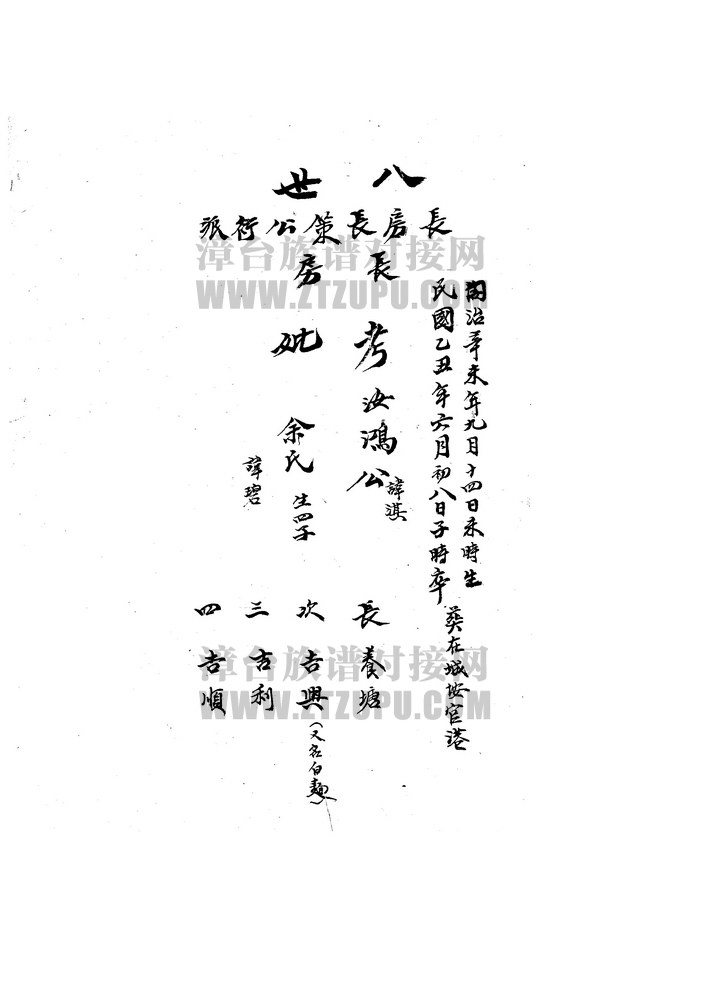 八世
長房長策公衍派
長房
同治辛未年九月十四日未時生
民國乙丑年六月初八日子時卒
葬在城垵官港
考 汝鴻公 諱淇
妣 余氏 生四子
諱碧
長 養塘
次 吉興(又名白麵)
三 吉利
四 吉順
漳台族谱对接网
WWW.ZTZUPU.COM
漳台族谱对接网
WWW.ZTZUPU.COM